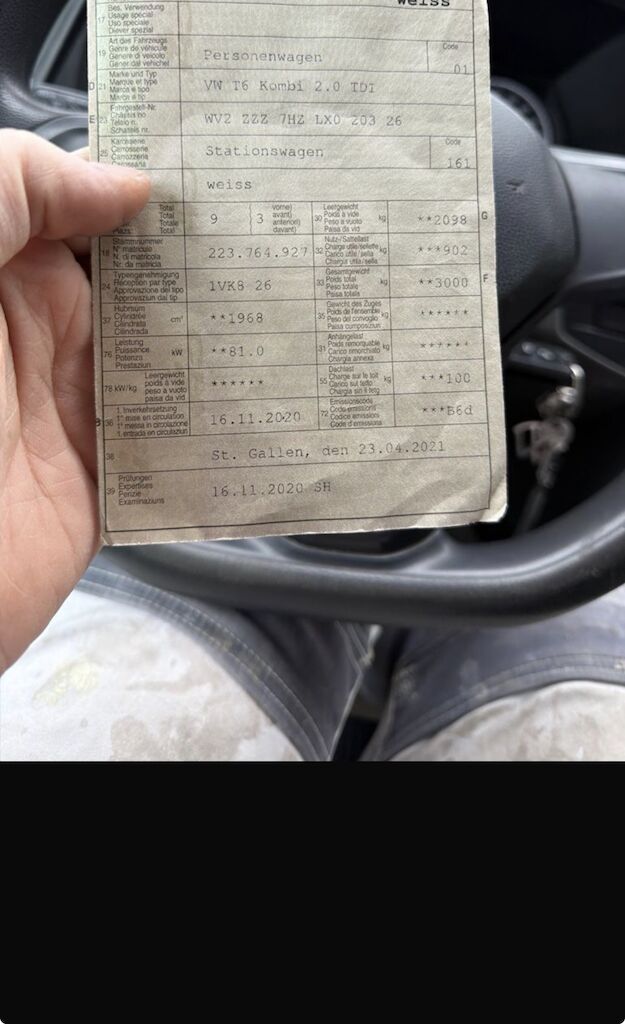 weiss
17 Bes. Verwendung
Usage spécial
Uso speciale
Diever spezial
19 Art des Fahrzeugs
Genre de véhicule
Genere di veicolo
Gener dal vehichel
Personenwagen
Code
01
D 21 Marke und Typ
Marque et type
Marca e tipo
Marca e tip
VW T6 Kombi 2.0 TDI
E 23 Fahrgestell-Nr.
Châssis no
Telaio n.
Schassis nr.
WV2 ZZZ 7HZ LX0 203 26
25 Karosserie
Carrosserie
Carrozzeria
Carossaria
Stationswagen
Code
161
weiss
Total
Total
Totale
Total
Plazs:
9 (3
vorne)
avant)
anteriori)
davant)
30 Leergewicht
Poids à vide
Peso a vuoto
Paisa da vid
kg
**2098 G
18 Stammnummer
N° matricule
N. di matricola
Nr. da matricla
223.764.927
32 Nutz-/Sattellast
Charge utile/sellette
Carico utile/sella
Chargia utila/sella
kg
***902
24 Typengenehmigung
Réception par type
Approvazione del tipo
Approvaziun dal tip
1VK8 26
33 Gesamtgewicht
Poids total
Peso totale
Paisa totala
kg
**3000 F
37 Hubraum
Cylindrée
Cilindrata
Cilindrada
cm³
**1968
35 Gewicht des Zuges
Poids de l'ensemble
Peso del convoglio
Paisa cumposiziun
kg
******
76 Leistung
Puissance
Potenza
Prestaziun
kW
**81.0
31 Anhängelast
Poids remorquable
Carico rimorchiato
Chargia annexa
kg
******
78 kW/kg
Leergewicht
poids à vide
peso a vuoto
paisa da vid
******
55 Dachlast
Charge sur le toit
Carico sul tetto
Chargia sin il tetg
kg
***100
B 36 1. Inverkehrsetzung
1re mise en circulation
1a messa in circolazione
1. entrada en circulaziun
16.11.2020
72 Emissionscode
Code émissions
Codice emissioni
Code d'emissiuns
***B6d
38
St. Gallen, den 23.04.2021
39 Prüfungen
Expertises
Perizie
Examinaziuns
16.11.2020 SH